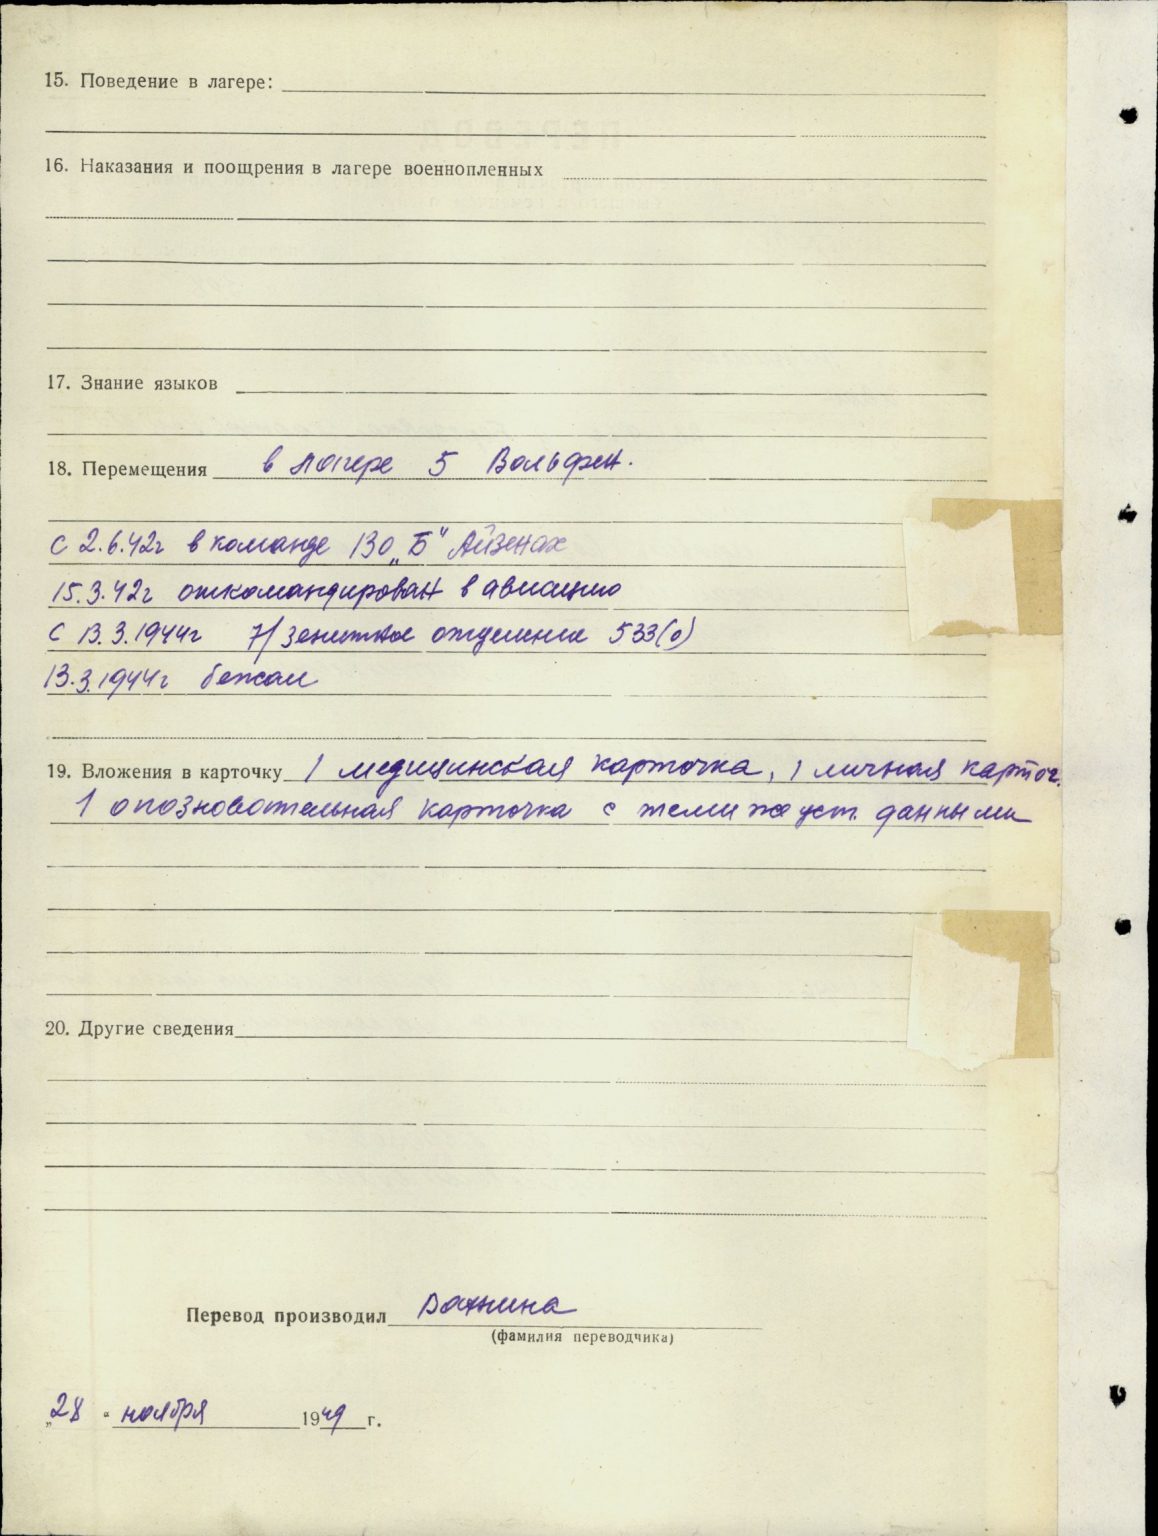 15. Поведение в лагере:
16. Наказания и поощрения в лагере военнопленных
17. Знание языков
18. Перемещения в лагере 5 Вольфен.
с 2.6.42г в команде 130 „Б“ Айзенах
15.3.42г откомандирован в авиацию
с 13.3.1944г 7/зенитное отделение 533(о)
13.3.1944г бежал
19. Вложения в карточку 1 медицинская карточка, 1 личная карточ.
1 опозновательная карточка с теми же уст. данными
20. Другие сведения
Перевод производил Вахнина
(фамилия переводчика)
„28“ ноября 1949 г.